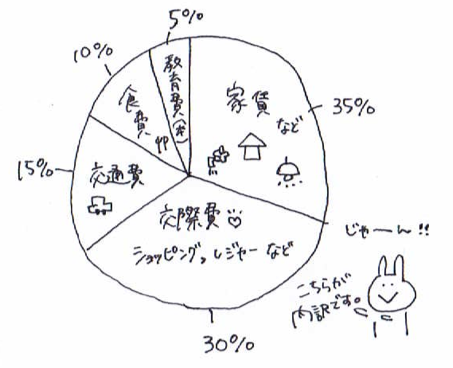 5%
教育費(本)
10%
食費
家賃
など
35%
15%
交通費
交際費
ショッピング、レジャーなど
30%
じゃーん!!
こちらが
内訳です。